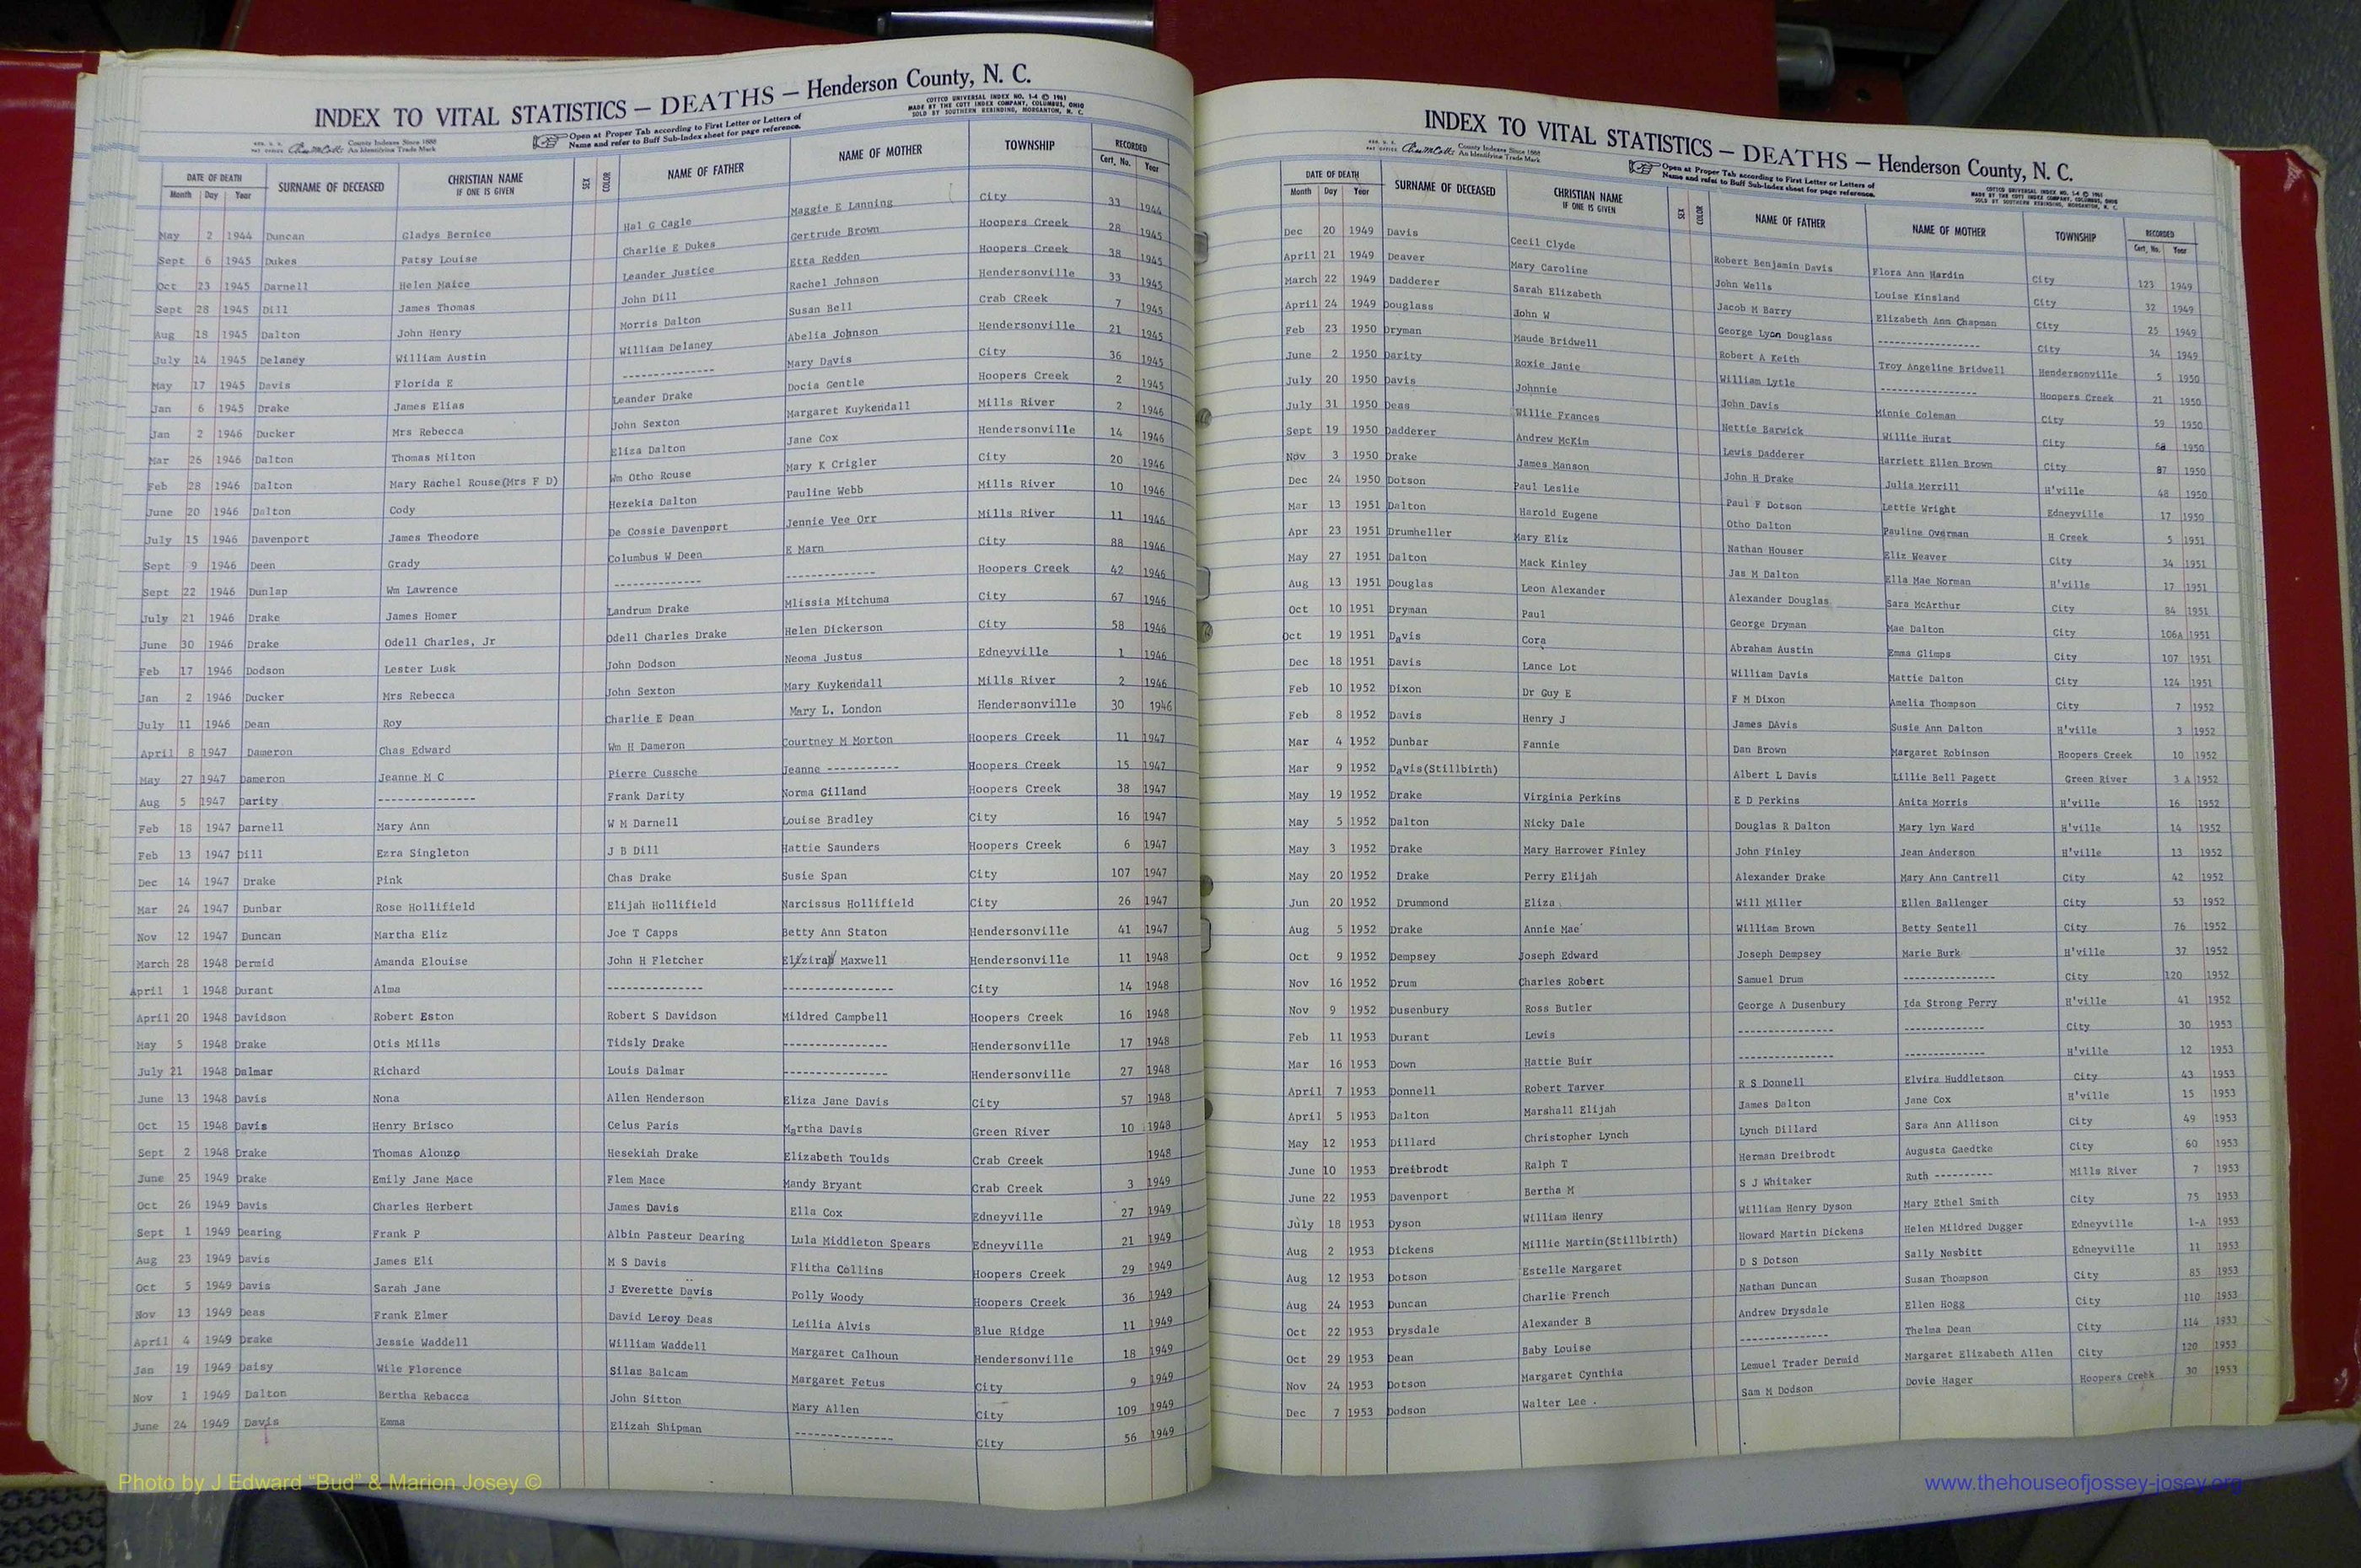 INDEX TO VITAL STATISTICS — DEATHS — Henderson County, N. C.
COTTCO UNIVERSAL INDEX NO. 1-4 © 1961
MADE BY THE COTT INDEX COMPANY, COLUMBUS, OHIO
SOLD BY SOUTHERN REBINDING, MORGANTON, N. C.
REG. U. S. PAT OFFICE County Indexes Since 1888 An Identifying Trade Mark
Open at Proper Tab according to First Letter or Letters of
Name and refer to Buff Sub-Index sheet for page reference.
DATE OF DEATH SURNAME OF DECEASED CHRISTIAN NAME IF ONE IS GIVEN SEX COLOR NAME OF FATHER NAME OF MOTHER TOWNSHIP RECORDED
Month Day Year Cert. No. Year
May 2 1944 Duncan Gladys Bernice Hal G Cagle Maggie E Lanning City 33 1944
Sept 6 1945 Dukes Patsy Louise Charlie E Dukes Gertrude Brown Hoopers Creek 28 1945
Oct 23 1945 Darnell Helen Maice Leander Justice Etta Redden Hoopers Creek 38 1945
Sept 28 1945 Dill James Thomas John Dill Rachel Johnson Hendersonville 33 1945
Aug 18 1945 Dalton John Henry Morris Dalton Susan Bell Crab CReek 7 1945
July 14 1945 Delaney William Austin William Delaney Abelia Johnson Hendersonville 21 1945
May 17 1945 Davis Florida E --------------- Mary Davis City 36 1945
Jan 6 1945 Drake James Elias Leander Drake Docia Gentle Hoopers Creek 2 1945
Jan 2 1946 Ducker Mrs Rebecca John Sexton Margaret Kuykendall Mills River 2 1946
Mar 26 1946 Dalton Thomas Milton Eliza Dalton Jane Cox Hendersonville 14 1946
Feb 28 1946 Dalton Mary Rachel Rouse(Mrs F D) Wm Otho Rouse Mary K Crigler City 20 1946
June 20 1946 Dalton Cody Hezekia Dalton Pauline Webb Mills River 10 1946
July 15 1946 Davenport James Theodore De Cossie Davenport Jennie Vee Orr Mills River 11 1946
Sept 9 1946 Deen Grady Columbus W Deen E Marn City 88 1946
Sept 22 1946 Dunlap Wm Lawrence -------------- -------------- Hoopers Creek 42 1946
July 21 1946 Drake James Homer Landrum Drake Mlissia Mitchuma City 67 1946
June 30 1946 Drake Odell Charles, Jr Odell Charles Drake Helen Dickerson City 58 1946
Feb 17 1946 Dodson Lester Lusk John Dodson Neoma Justus Edneyville 1 1946
Jan 2 1946 Ducker Mrs Rebecca John Sexton Mary Kuykendall Mills River 2 1946
July 11 1946 Dean Roy Charlie E Dean Mary L. London Hendersonville 30 1946
April 8 1947 Dameron Chas Edward Wm H Dameron Courtney M Morton Hoopers Creek 11 1947
May 27 1947 Dameron Jeanne M C Pierre Cussche Jeanne ----------- Hoopers Creek 15 1947
Aug 5 1947 Darity --------------- Frank Darity Norma Gilland Hoopers Creek 38 1947
Feb 18 1947 Darnell Mary Ann W M Darnell Louise Bradley City 16 1947
Feb 13 1947 Dill Ezra Singleton J B Dill Hattie Saunders Hoopers Creek 6 1947
Dec 14 1947 Drake Pink Chas Drake Susie Span City 107 1947
Mar 24 1947 Dunbar Rose Hollifield Elijah Hollifield Narcissus Hollifield City 26 1947
Nov 12 1947 Duncan Martha Eliz Joe T Capps Betty Ann Staton Hendersonville 41 1947
March 28 1948 Dermid Amanda Elouise John H Fletcher Maxwell Hendersonville 11 1948
April 1 1948 Durant Alma --------------- ---------------- City 14 1948
April 20 1948 Davidson Robert Eston Robert S Davidson Mildred Campbell Hoopers Creek 16 1948
May 5 1948 Drake Otis Mills Tidsly Drake --------------- Hendersonville 17 1948
July 21 1948 Dalmar Richard Louis Dalmar --------------- Hendersonville 27 1948
June 13 1948 Davis Nona Allen Henderson Eliza Jane Davis City 57 1948
Oct 15 1948 Davis Henry Brisco Celus Paris Martha Davis Green River 10 1948
Sept 2 1948 Drake Thomas Alonzo Hesekiah Drake Elizabeth Toulds Crab Creek 1948
June 25 1949 Drake Emily Jane Mace Flem Mace Mandy Bryant Crab Creek 3 1949
Oct 26 1949 Davis Charles Herbert James Davis Ella Cox Edneyville 27 1949
Sept 1 1949 Dearing Frank P Albin Pasteur Dearing Lula Middleton Spears Edneyville 21 1949
Aug 23 1949 Davis James Eli M S Davis Flitha Collins Hoopers Creek 29 1949
Oct 5 1949 Davis Sarah Jane J Everette Davis Polly Woody Hoopers Creek 36 1949
Nov 13 1949 Deas Frank Elmer David Leroy Deas Leilia Alvis Blue Ridge 11 1949
April 4 1949 Drake Jessie Waddell William Waddell Margaret Calhoun Hendersonville 18 1949
Jan 19 1949 Daisy Wile Florence Silas Balcam Margaret Fetus City 9 1949
Nov 1 1949 Dalton Bertha Rebacca John Sitton Mary Allen City 109 1949
June 24 1949 Davis Emma Elizah Shipman --------------- City 56 1949
INDEX TO VITAL STATISTICS — DEATHS — Henderson County, N. C.
COTTCO UNIVERSAL INDEX NO. 1-4 © 1961
MADE BY THE COTT INDEX COMPANY, COLUMBUS, OHIO
SOLD BY SOUTHERN REBINDING, MORGANTON, N. C.
REG. U. S. PAT OFFICE County Indexes Since 1888 An Identifying Trade Mark
Open at Proper Tab according to First Letter or Letters of
Name and refer to Buff Sub-Index sheet for page reference.
DATE OF DEATH SURNAME OF DECEASED CHRISTIAN NAME IF ONE IS GIVEN SEX COLOR NAME OF FATHER NAME OF MOTHER TOWNSHIP RECORDED
Month Day Year Cert. No. Year
Dec 20 1949 Davis Cecil Clyde Robert Benjamin Davis Flora Ann Hardin City 123 1949
April 21 1949 Deaver Mary Caroline John Wells Louise Kinsland City 32 1949
March 22 1949 Dadderer Sarah Elizabeth Jacob M Barry Elizabeth Ann Chapman City 25 1949
April 24 1949 Douglass John W George Lyon Douglass ---------------- City 34 1949
Feb 23 1950 Dryman Maude Bridwell Robert A Keith Troy Angeline Bridwell Hendersonville 5 1950
June 2 1950 Darity Roxie Janie William Lytle --------------- Hoopers Creek 21 1950
July 20 1950 Davis Johnnie John Davis Minnie Coleman City 59 1950
July 31 1950 Deas Willie Frances Nettie Barwick Willie Hurst City 68 1950
Sept 19 1950 Dadderer Andrew McKim Lewis Dadderer Harriett Ellen Brown City 87 1950
Nov 3 1950 Drake James Manson John H Drake Julia Merrill H'ville 48 1950
Dec 24 1950 Dotson Paul Leslie Paul F Dotson Lettie Wright Edneyville 17 1950
Mar 13 1951 Dalton Harold Eugene Otho Dalton Pauline Overman H Creek 5 1951
Apr 23 1951 Drumheller Mary Eliz Nathan Houser Eliz Weaver City 34 1951
May 27 1951 Dalton Mack Kinley Jas M Dalton Ella Mae Norman H'ville 17 1951
Aug 13 1951 Douglas Leon Alexander Alexander Douglas Sara McArthur City 84 1951
Oct 10 1951 Dryman Paul George Dryman Mae Dalton City 106A 1951
Oct 19 1951 Davis Cora Abraham Austin Emma Glimps City 107 1951
Dec 18 1951 Davis Lance Lot William Davis Mattie Dalton City 124 1951
Feb 10 1952 Dixon Dr Guy E F M Dixon Amelia Thompson City 7 1952
Feb 8 1952 Davis Henry J James DAvis Susie Ann Dalton H'ville 3 1952
Mar 4 1952 Dunbar Fannie Dan Brown Margaret Robinson Hoopers Creek 10 1952
Mar 9 1952 Davis(Stillbirth) Albert L Davis Lillie Bell Pagett Green River 3 A 1952
May 19 1952 Drake Virginia Perkins E D Perkins Anita Morris H'ville 16 1952
May 5 1952 Dalton Nicky Dale Douglas R Dalton Mary lyn Ward H'ville 14 1952
May 3 1952 Drake Mary Harrower Finley John Finley Jean Anderson H'ville 13 1952
May 20 1952 Drake Perry Elijah Alexander Drake Mary Ann Cantrell City 42 1952
Jun 20 1952 Drummond Eliza Will Miller Ellen Ballenger City 53 1952
Aug 5 1952 Drake Annie Mae William Brown Betty Sentell City 76 1952
Oct 9 1952 Dempsey Joseph Edward Joseph Dempsey Marie Burk H'ville 37 1952
Nov 16 1952 Drum Charles Robert Samuel Drum --------------- City 120 1952
Nov 9 1952 Dusenbury Ross Butler George A Dusenbury Ida Strong Perry H'ville 41 1952
Feb 11 1953 Durant Lewis --------------- ------------- City 30 1953
Mar 16 1953 Down Hattie Buir --------------- ------------- H'ville 12 1953
April 7 1953 Donnell Robert Tarver R S Donnell Elvira Huddletson City 43 1953
April 5 1953 Dalton Marshall Elijah James Dalton Jane Cox H'ville 15 1953
May 12 1953 Dillard Christopher Lynch Lynch Dillard Sara Ann Allison City 49 1953
June 10 1953 Dreibrodt Ralph T Herman Dreibrodt Augusta Gaedtke City 60 1953
June 22 1953 Davenport Bertha M S J Whitaker Ruth ---------- Mills River 7 1953
July 18 1953 Dyson William Henry William Henry Dyson Mary Ethel Smith City 75 1953
Aug 2 1953 Dickens Millie Martin(Stillbirth) Howard Martin Dickens Helen Mildred Dugger Edneyville 1-A 1953
Aug 12 1953 Dotson Estelle Margaret D S Dotson Sally Nesbitt Edneyville 11 1953
Aug 24 1953 Duncan Charlie French Nathan Duncan Susan Thompson City 85 1953
Oct 22 1953 Drysdale Alexander B Andrew Drysdale Ellen Hogg City 110 1953
Oct 29 1953 Dean Baby Louise -------------- Thelma Dean City 114 1953
Nov 24 1953 Dotson Margaret Cynthia Lemuel Trader Dermid Margaret Elizabeth Allen City 120 1953
Dec 7 1953 Dodson Walter Lee . Sam M Dodson Dovie Hager Hoopers Creek 30 1953
Photo by J Edward "Bud" & Marion Josey ©
www.thehouseofjossey-josey.org